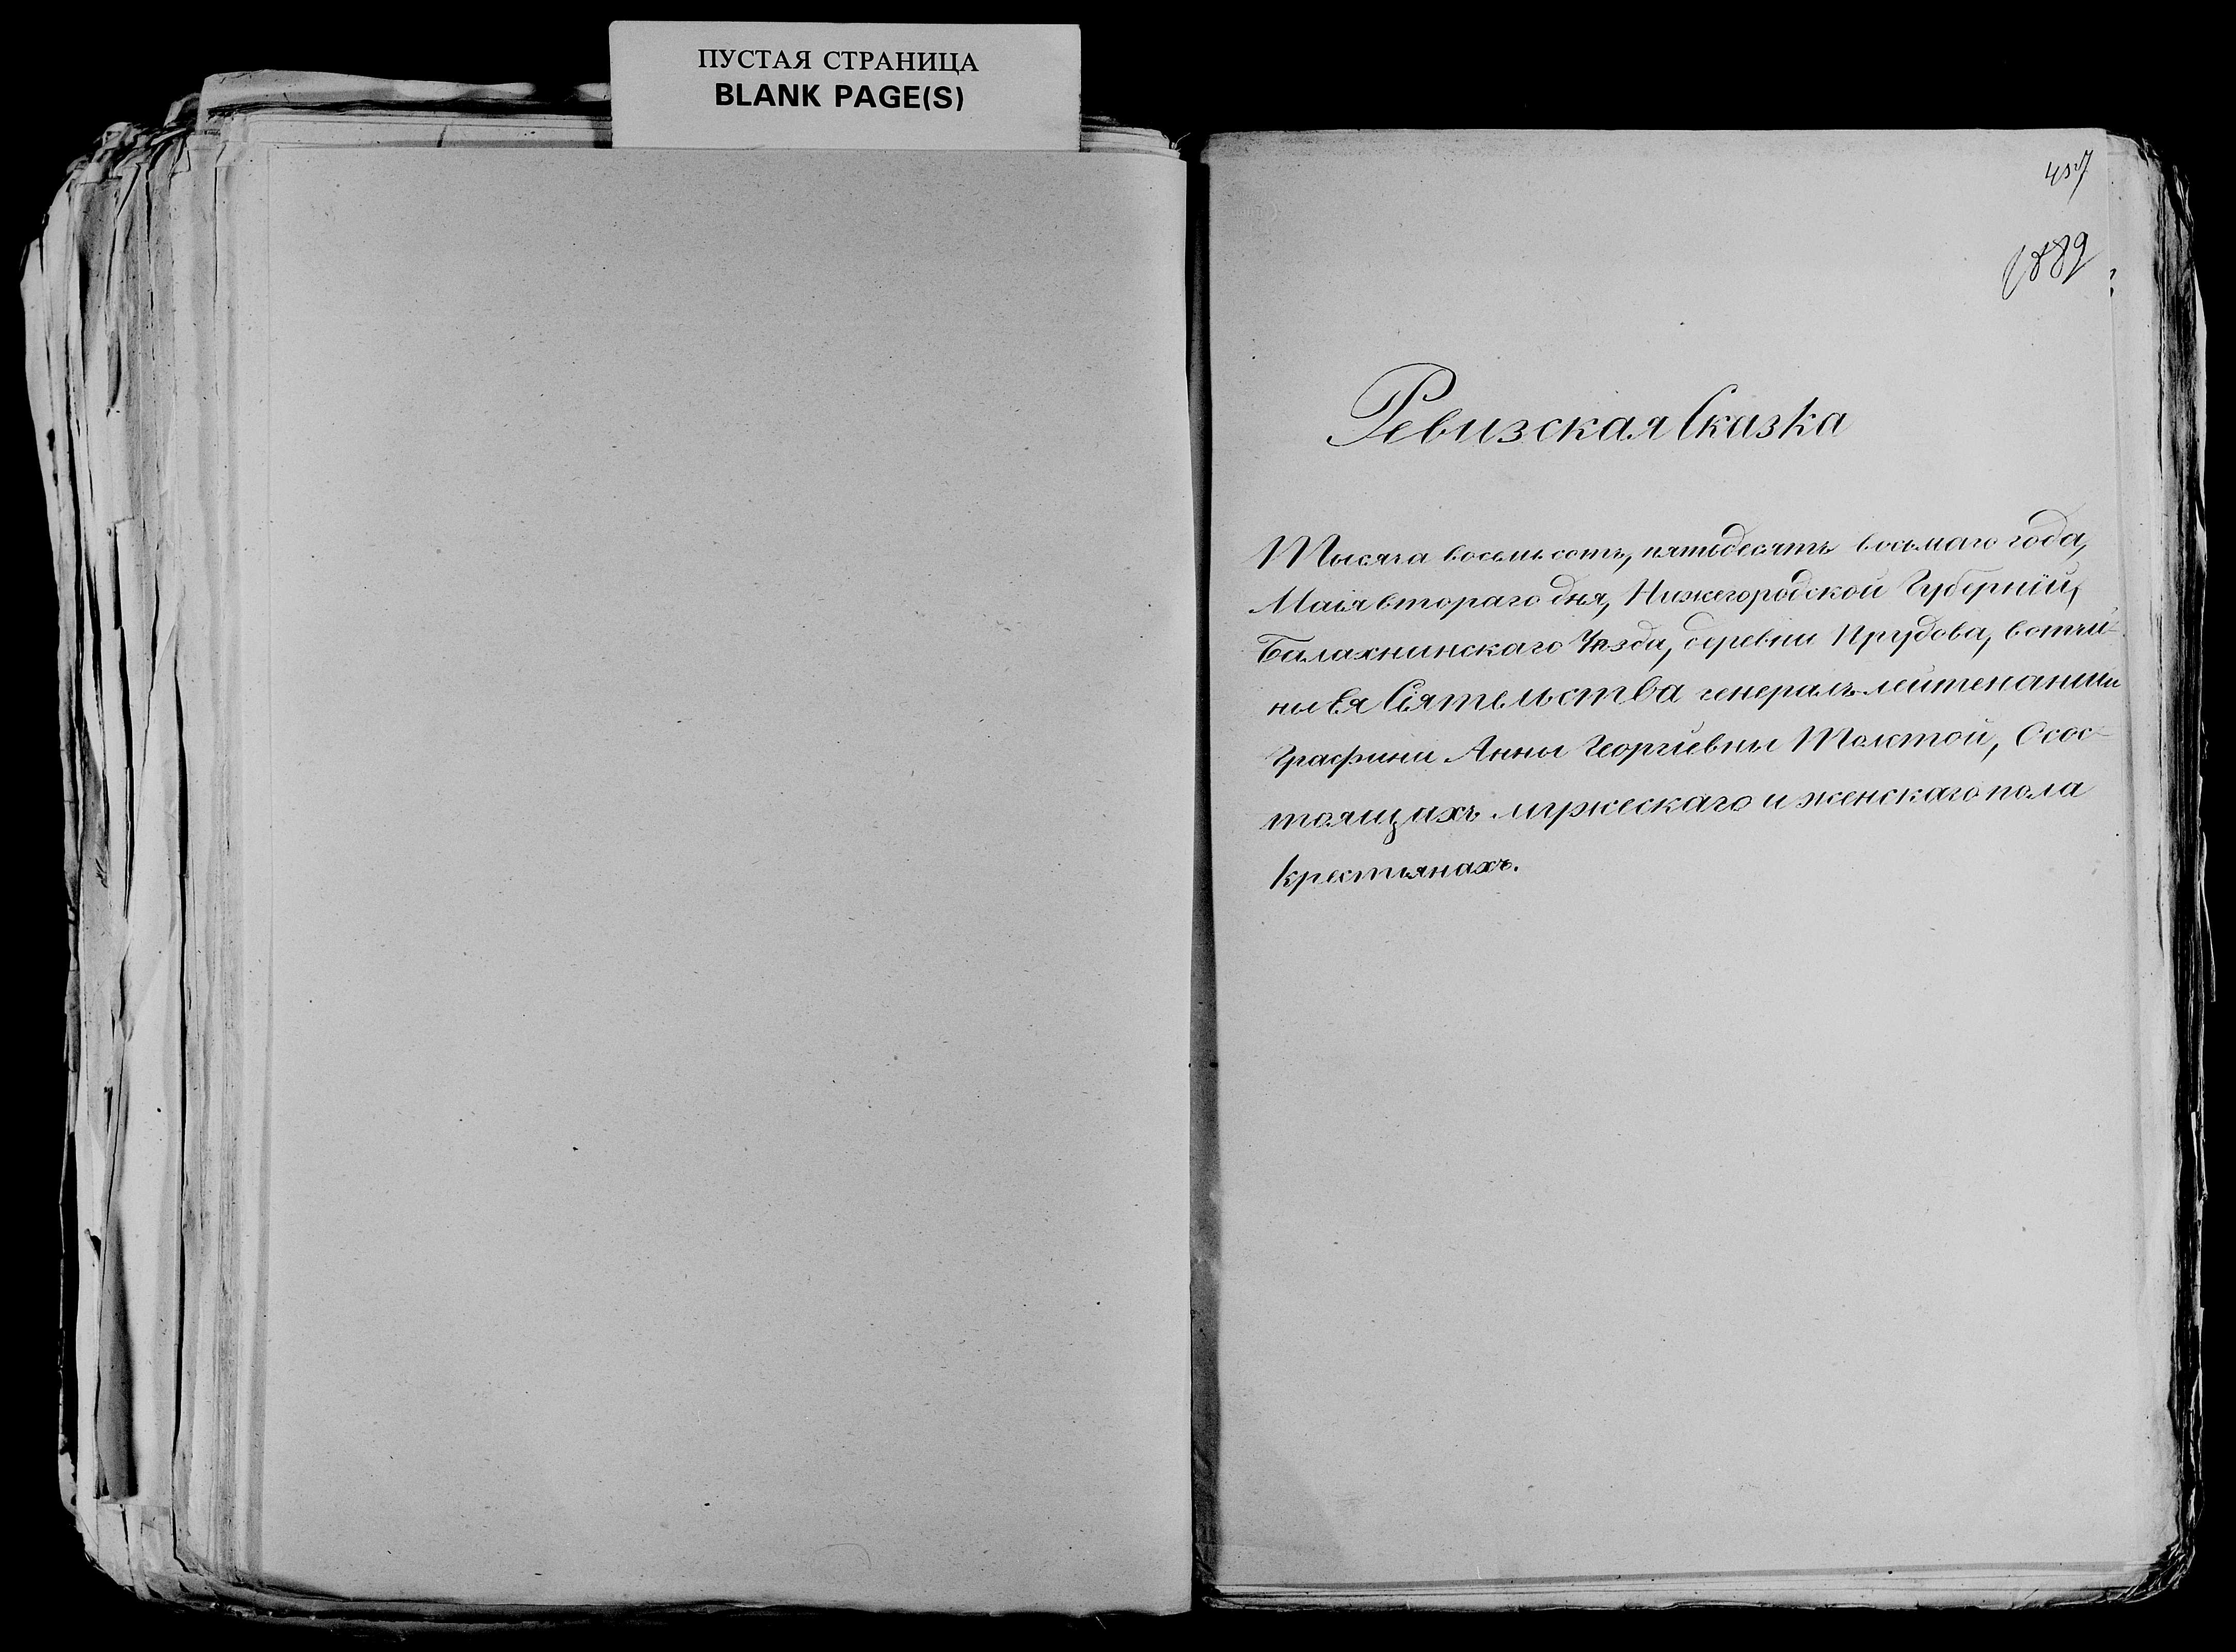 ПУСТАЯ СТРАНИЦА
BLANK PAGE(S)
457
1889
Ревизская Сказка
Тысяча восемьсотъ, пятьдесятъ восьмаго года,
Маiя втораго дня, Нижегородской Губернiи,
Балахнинскаго Уѣзда, деревни Прудова, вотчи-
ны Ея Сiятельства генералъ-лейтенанши
Графини Анны Георгiевны Толстой, Осос-
тоящихъ мужескаго и женскаго пола
крестьянахъ.